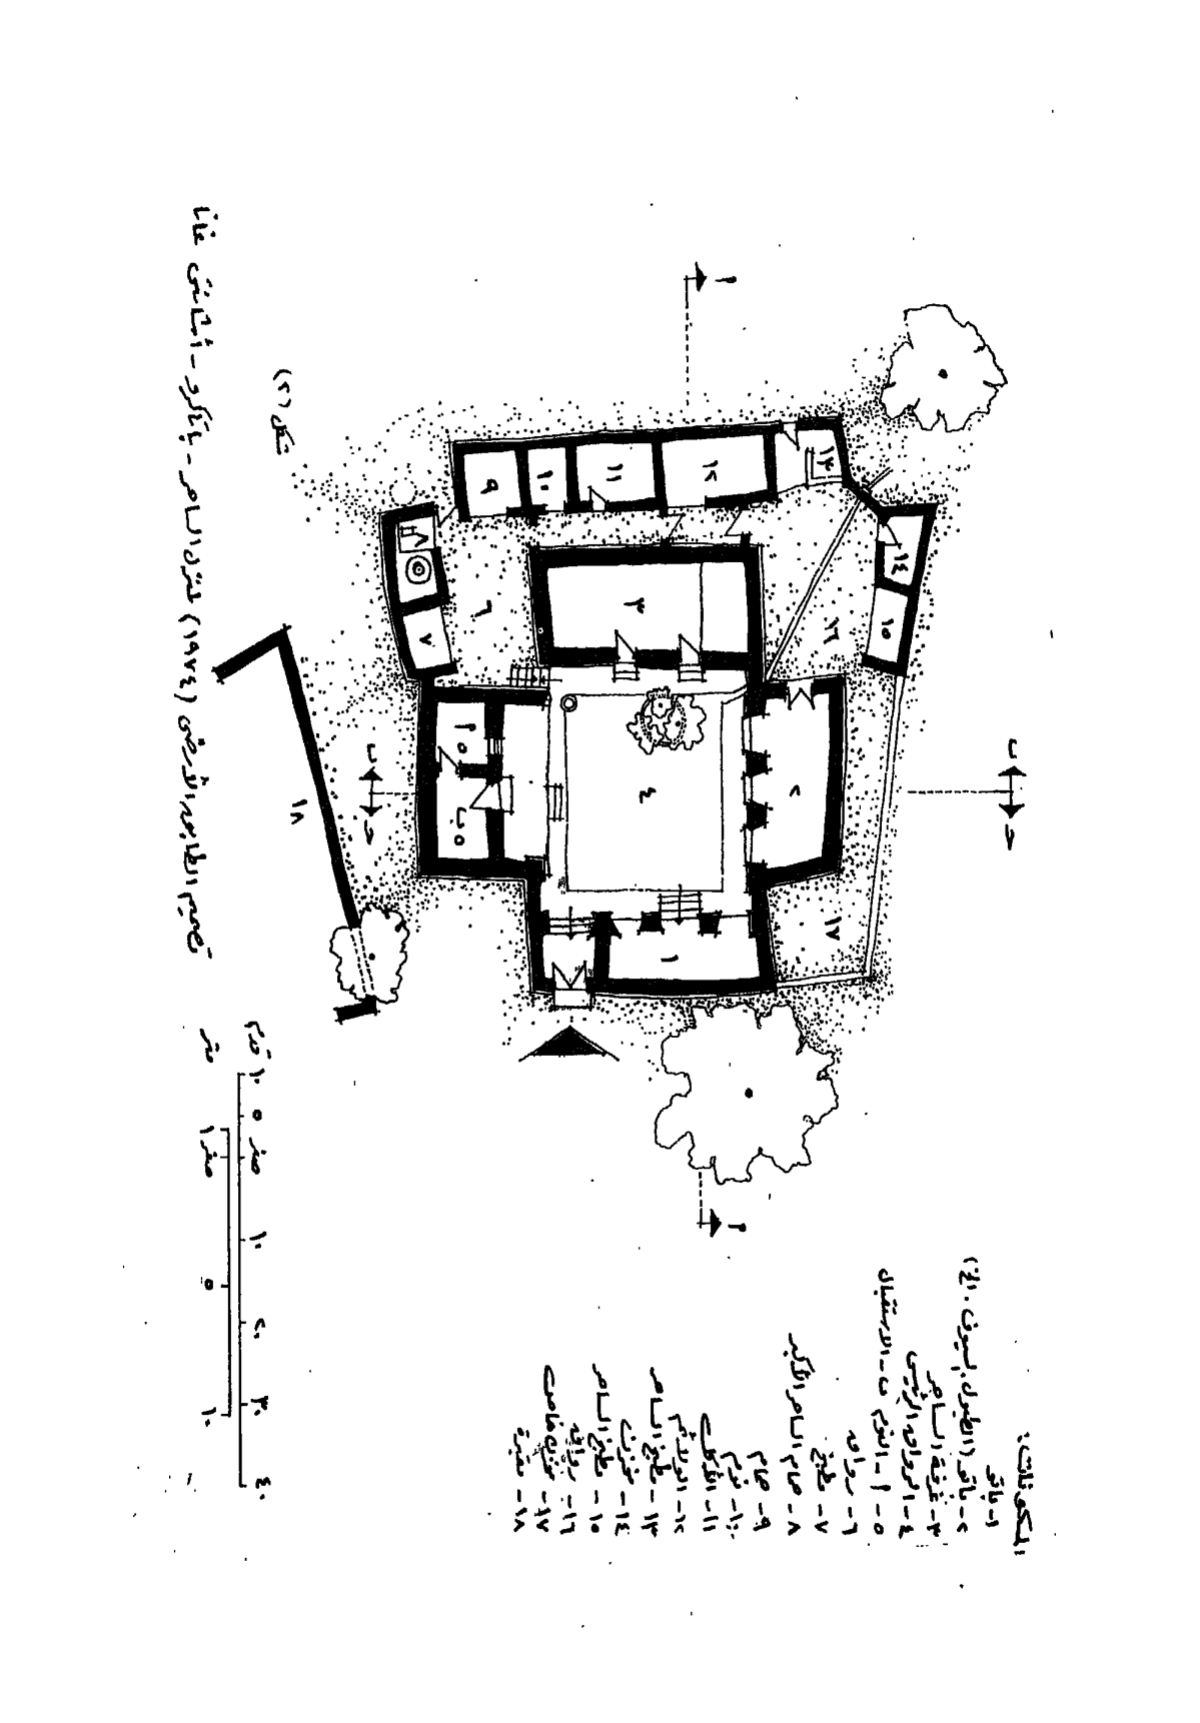 المكونات:
١- باتو
٢- باتو (الطبول، السيوف، الخ)
٣- غرفة الساحر
٤- الرواق الرئيسي
٥- أ- النوم ب- الاستقبال
٦- رواق
٧- مطبخ
٨- حمام الساحر الأكبر
٩- حمام
١٠- نوم
١١- الأكل
١٢- الولائم
١٣- مطبخ الساحر
١٤- مخزن
١٥- مطبخ الساحر
١٦- رواق
١٧- خاصة
١٨- مقبرة
أ
ب
ج
١٣
١٢
١١
١٠
٩
٨
٧
٦
٣
١٤
١٥
١٦
٥أ
٥ب
٤
٢
١
١٧
١٨
ب
ج
أ
١٠ قدم
٥
صفر
١٠
٢٠
٣٠
٤٠
متر
١
صفر
٥
١٠
شكل (٢)
تصميم الطابق الأرضي (١٩٧٤) لمنزل الساحر - باكرو - أشانتي غانا